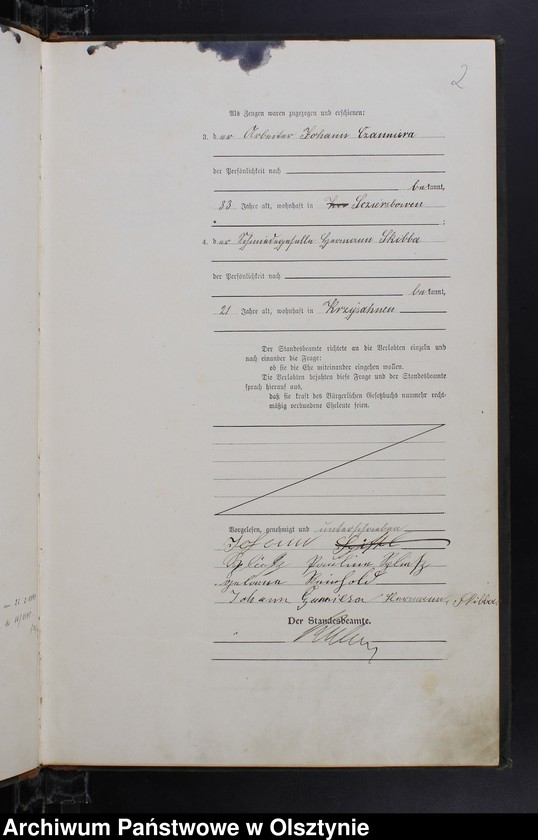 2
Als Zeugen waren zugezogen und erschienen:
3. der Arbeiter Johann Czanniera
der Persönlichkeit nach
bekannt,
33 Jahre alt, wohnhaft in
4. der Schmiedegeselle Hermann Skibba
der Persönlichkeit nach
bekannt,
21 Jahre alt, wohnhaft in Krzysahnen
Der Standesbeamte richtete an die Verlobten einzeln und
nach einander die Frage:
ob sie die Ehe miteinander eingehen wollen.
Die Verlobten bejahten diese Frage und der Standesbeamte
sprach hierauf aus,
daß sie kraft des Bürgerlichen Gesetzbuchs nunmehr recht-
mäßig verbundene Eheleute seien.
Vorgelesen, genehmigt und unterschrieben
Johann
Pauline
geborene Reinhold
Johann Hermann Skibba
Der Standesbeamte.
Archiwum Państwowe w Olsztynie